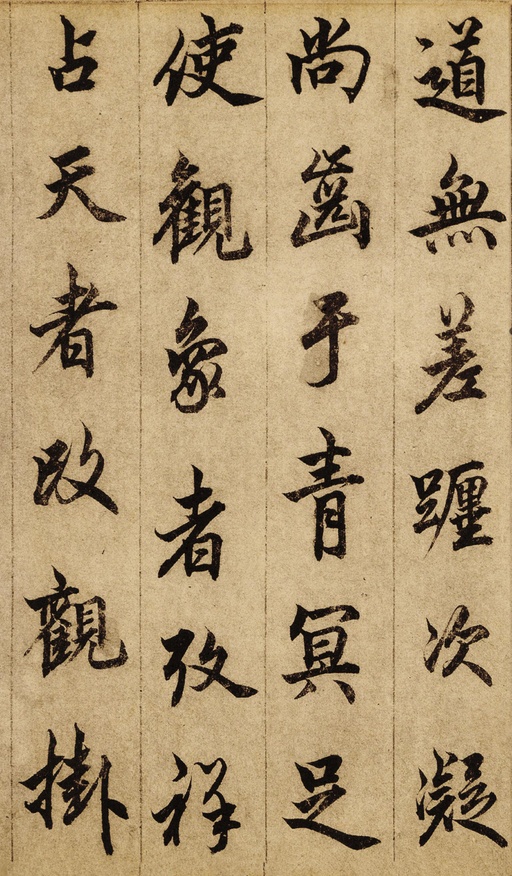 道無差躔次凝
尚齒于青冥足
使觀象者攷祥
占天者改觀掛